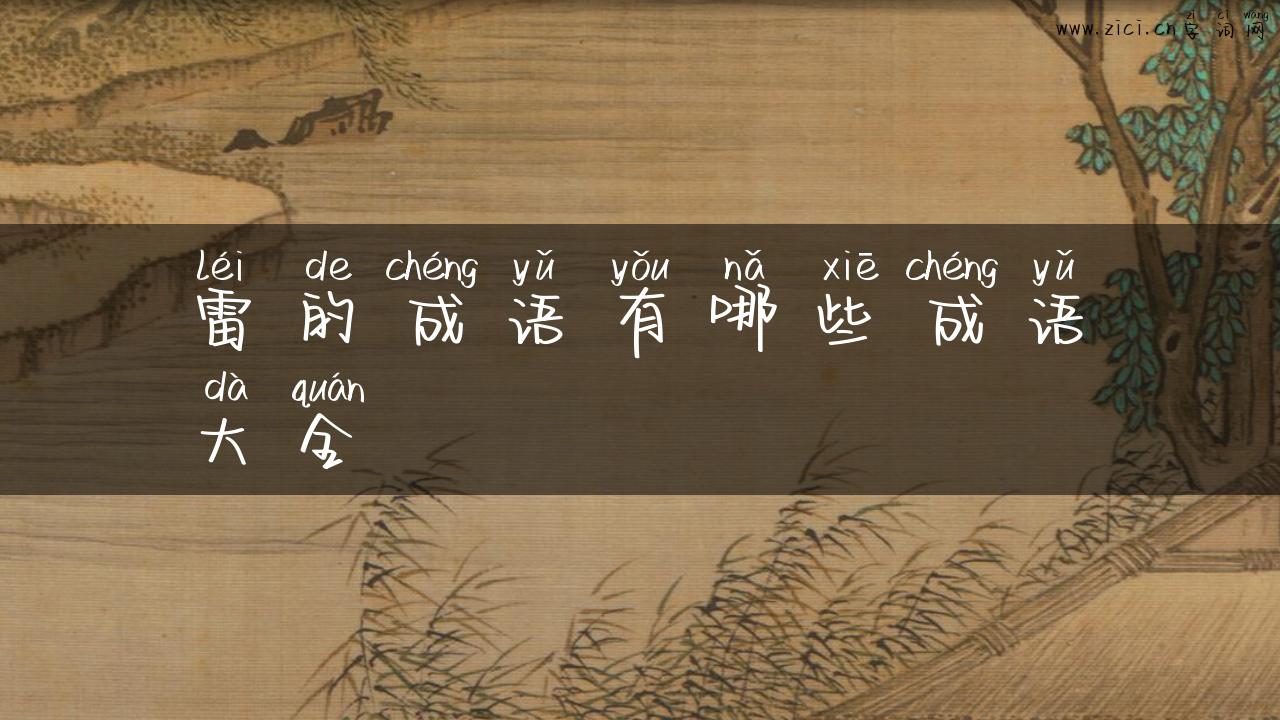 zì cí wǎng
www.zici.cn字词网
léi de chéng yǔ yǒu nǎ xiē chéng yǔ
雷的成语有哪些成语
dà quán
大全